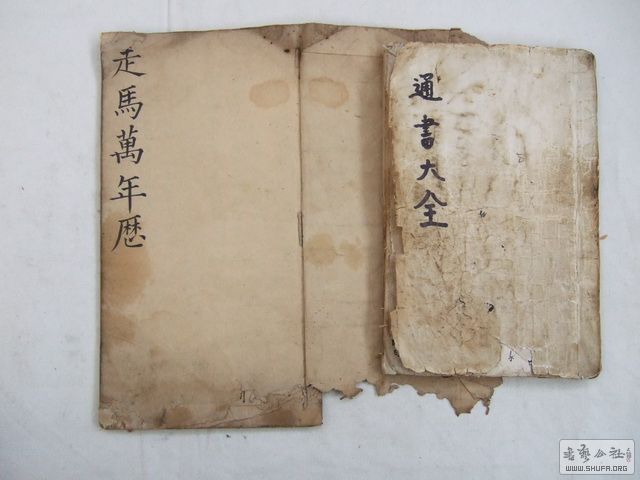 走馬萬年歷
通書大全
書藝公社
WWW.SHUFA.ORG